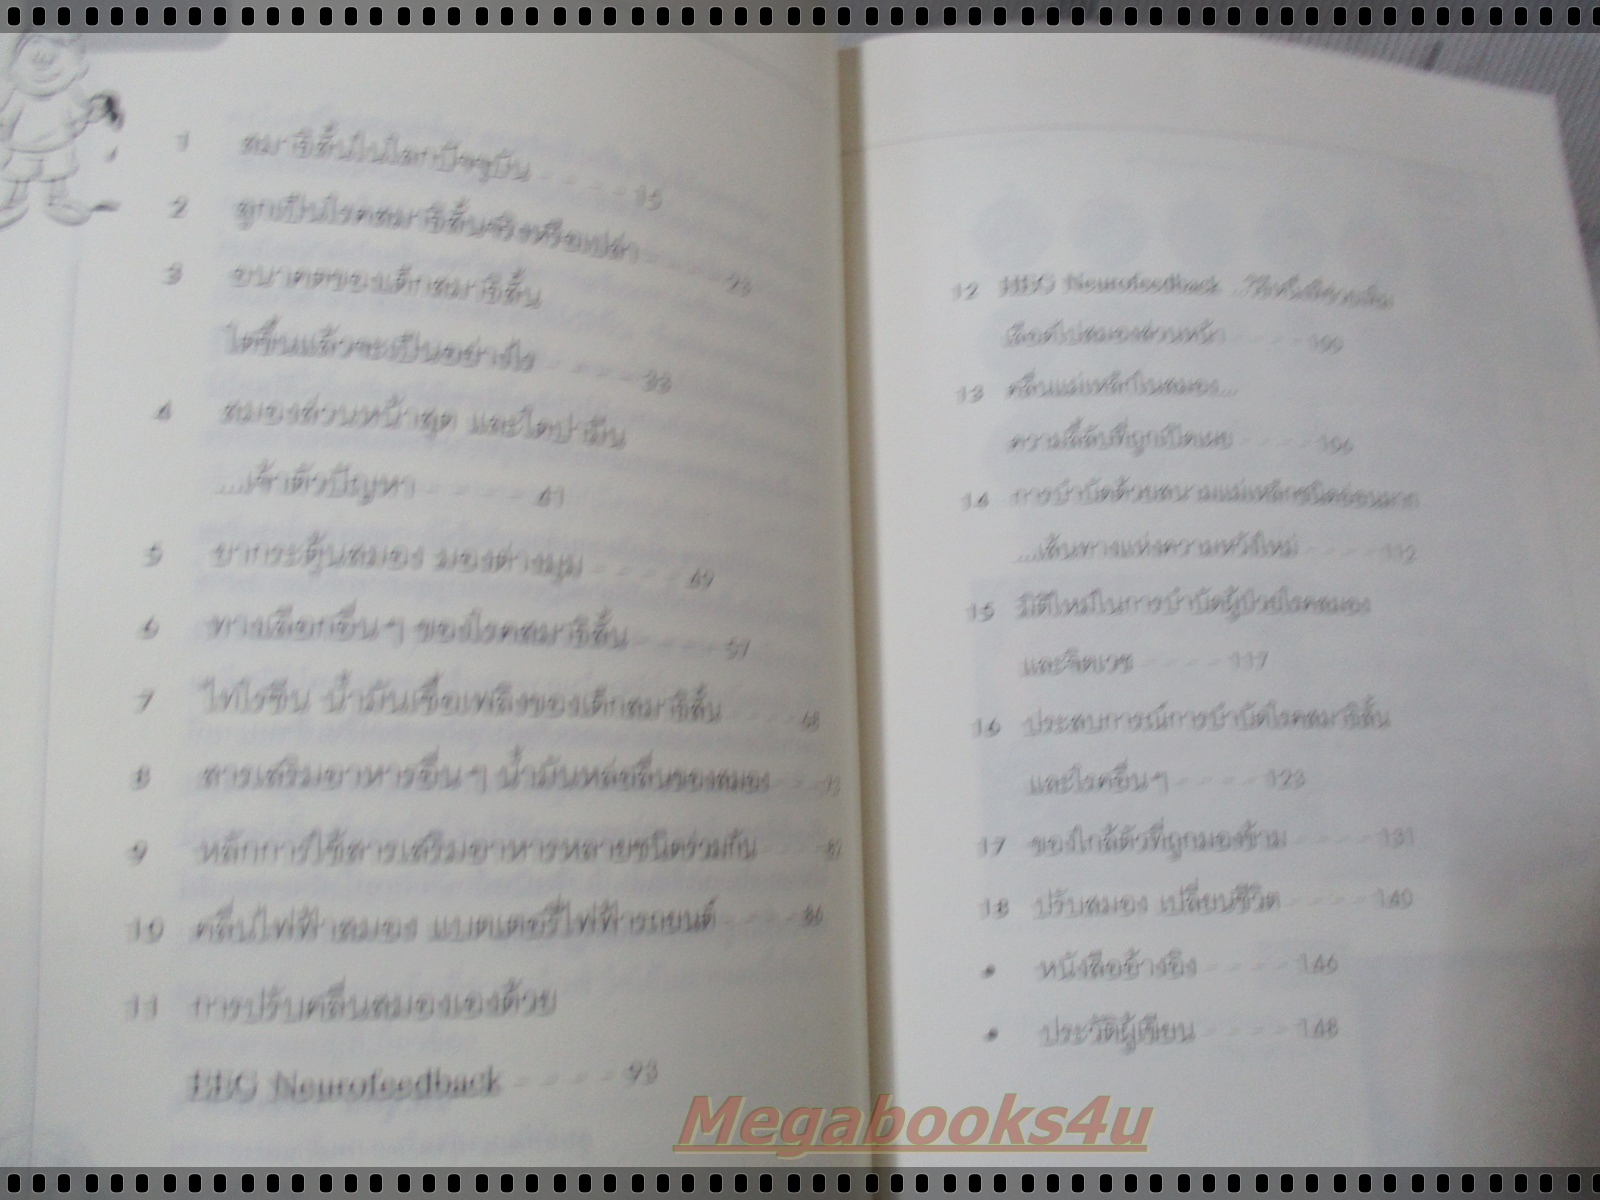 1 สมาธิสั้นในโลกปัจจุบัน ---- 15
2 ลูกเป็นโรคสมาธิสั้นจริงหรือเปล่า ---- 23
3 อนาคตของเด็กสมาธิสั้น
โตขึ้นแล้วจะเป็นอย่างไร ---- 33
4 สมองส่วนหน้าสุด และโดปามีน
...เจ้าตัวปัญหา ---- 41
5 ยากระตุ้นสมอง มองต่างมุม ---- 49
6 ทางเลือกอื่นๆ ของโรคสมาธิสั้น ---- 57
7 ไทโรซีน น้ำมันเชื้อเพลิงของเด็กสมาธิสั้น ---- 68
8 สารเสริมอาหารอื่นๆ น้ำมันหล่อลื่นของสมอง ---- 73
9 หลักการใช้สารเสริมอาหารหลายชนิดร่วมกัน ----
10 คลื่นไฟฟ้าสมอง แบตเตอรี่ไฟฟ้ารถยนต์ ---- 86
11 การปรับคลื่นสมองเองด้วย
EEG Neurofeedback ---- 93
12 HEG Neurofeedback ...
เลือดไปสมองส่วนหน้า ---- 100
13 คลื่นแม่เหล็กในสมอง...
ความลี้ลับที่ถูกเปิดเผย ---- 106
14 การบำบัดด้วยสนามแม่เหล็กชนิดอ่อนมาก
...เส้นทางแห่งความหวังใหม่ ---- 112
15 มิติใหม่ในการบำบัดผู้ป่วยโรคสมอง
และจิตเวช ---- 117
16 ประสบการณ์การบำบัดโรคสมาธิสั้น
และโรคอื่นๆ ---- 123
17 ของใกล้ตัวที่ถูกมองข้าม ---- 131
18 ปรับสมอง เปลี่ยนชีวิต ---- 140
• หนังสืออ้างอิง ---- 146
• ประวัติผู้เขียน ---- 148
Megabooks4u